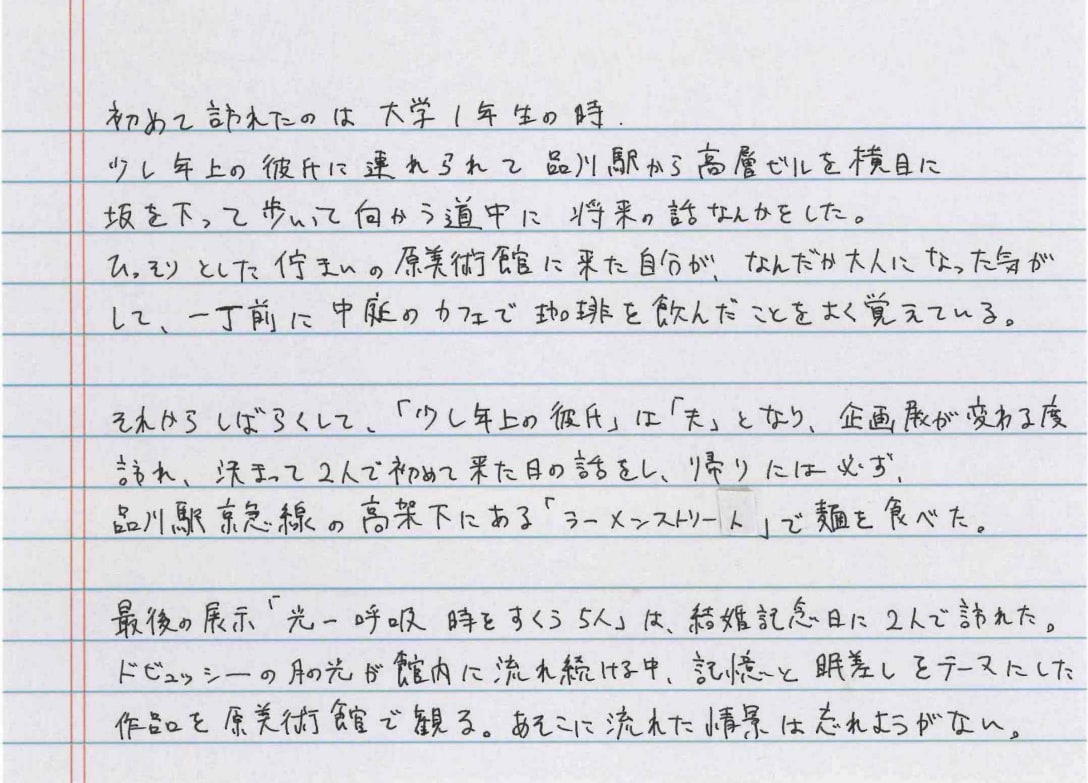 初めて訪れたのは大学1年生の時.
少し年上の彼氏に連れられて品川駅から高層ビルを横目に
坂を下って歩いて向かう道中に将来の話なんかをした。
ひっそりとした佇まいの原美術館に来た自分が、なんだか大人になった気が
して、一丁前に中庭のカフェで珈琲を飲んだことをよく覚えている。
それからしばらくして、「少し年上の彼氏」は「夫」となり、企画展が変わる度
訪れ、決まって2人で初めて来た日の話をし、帰りには必ず、
品川駅京急線の高架下にある「ラーメンストリート」で麺を食べた。
最後の展示「光ー呼吸 時をすくう5人」は、結婚記念日に2人で訪れた。
ドビュッシーの月の光が館内に流れ続ける中、記憶と眼差しをテーマにした
作品を原美術館で観る。あそこに流れた情景は忘れようがない。